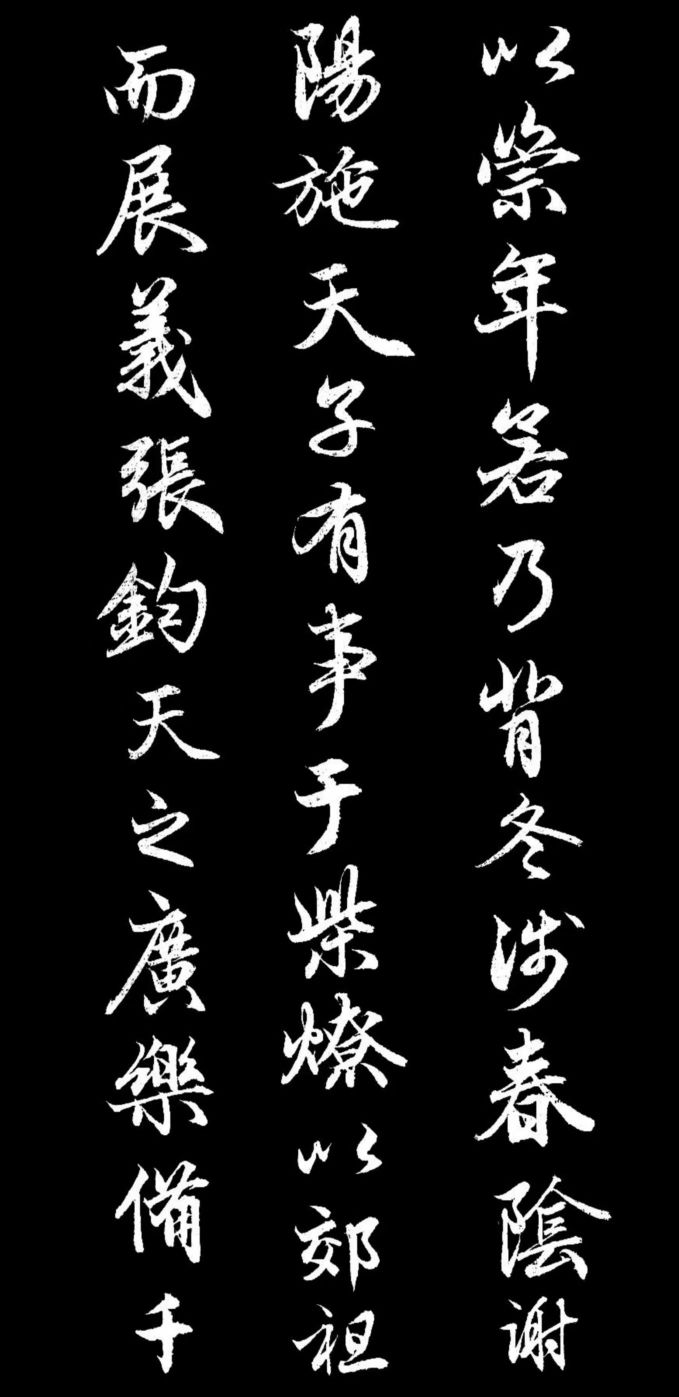 以崇年若乃背冬涉春陰謝
陽施天子有事于柴燎以郊祖
而展義張鈞天之廣樂備千